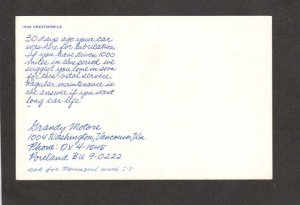 1902 OLDSMOBILE
30 days ago your car
was here for lubrication
If you have driven 1000
miles in this period we
suggest you come in soon
for this vital service.
Regular maintenance is
the answer if you want
long car life"
Grandy Motors
1004 Washington, Vancouver, Wn
Phone: OX 4-1645
Portland BU 9-0222
ask for Pennzoil with Z-7